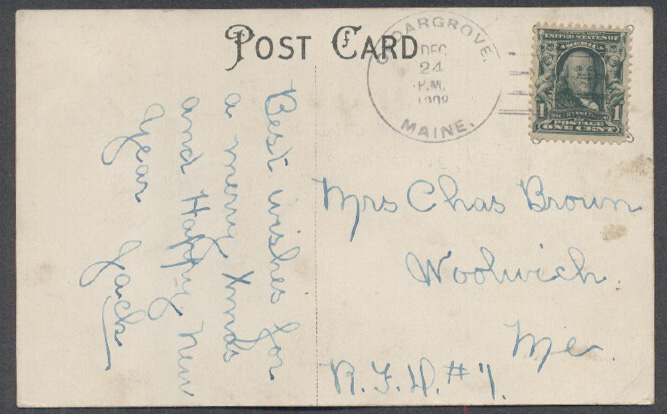 POST CARD
CEDARGROVE.
DEC
24
P.M.
1908
MAINE.
UNITED STATES OF
AMERICA
1 1
POSTAGE
ONE CENT
Best wishes for
a merry Xmas
and Happy New
Year
Jack
Mrs Chas Brown
Woolwich
Me.
R.F.D. #1.